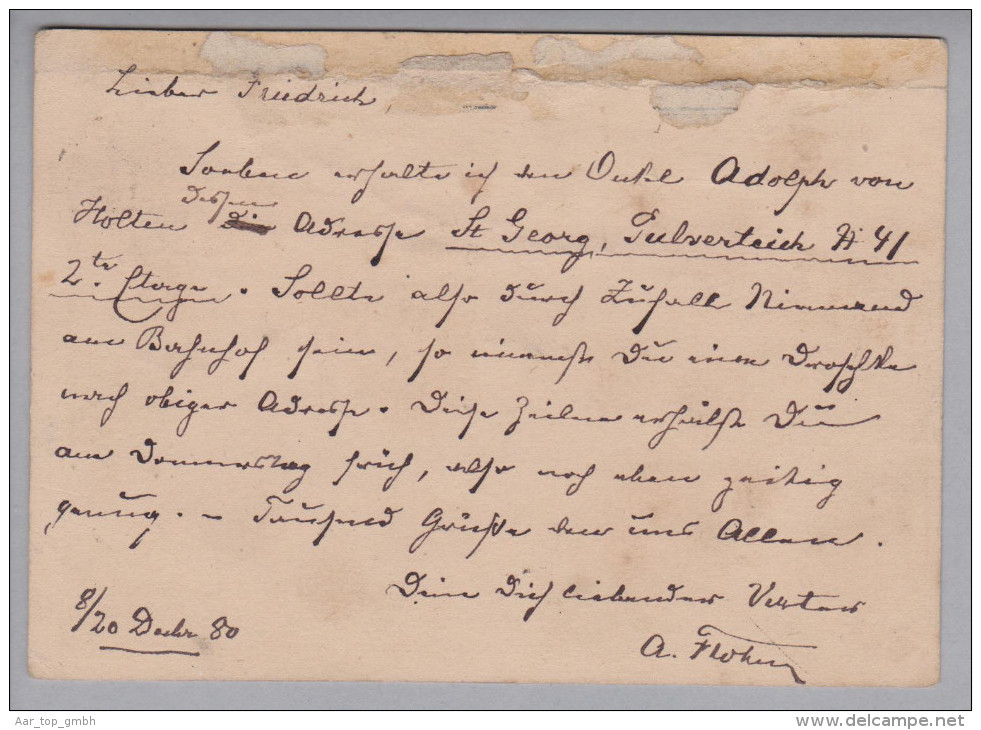 Lieber Friedrich,
Soeben erhalte ich von Onkel Adolph von
dessen
Holten Adresse St Georg, Pulverteich N 41
2.te Etage. Sollte also durch Zufall Niemand
am Bahnhof sein, so nimmst Du eine Droschke
nach obiger Adresse. Diese Zeilen erhältst Du
am Donnerstag früh, also noch eben zeitig
genug. – Tausend Grüße von uns Allen.
Dein Dich liebender Vater
8/20 Decbr 80
A.
Aar_top_gmbh
www.delcampe.net